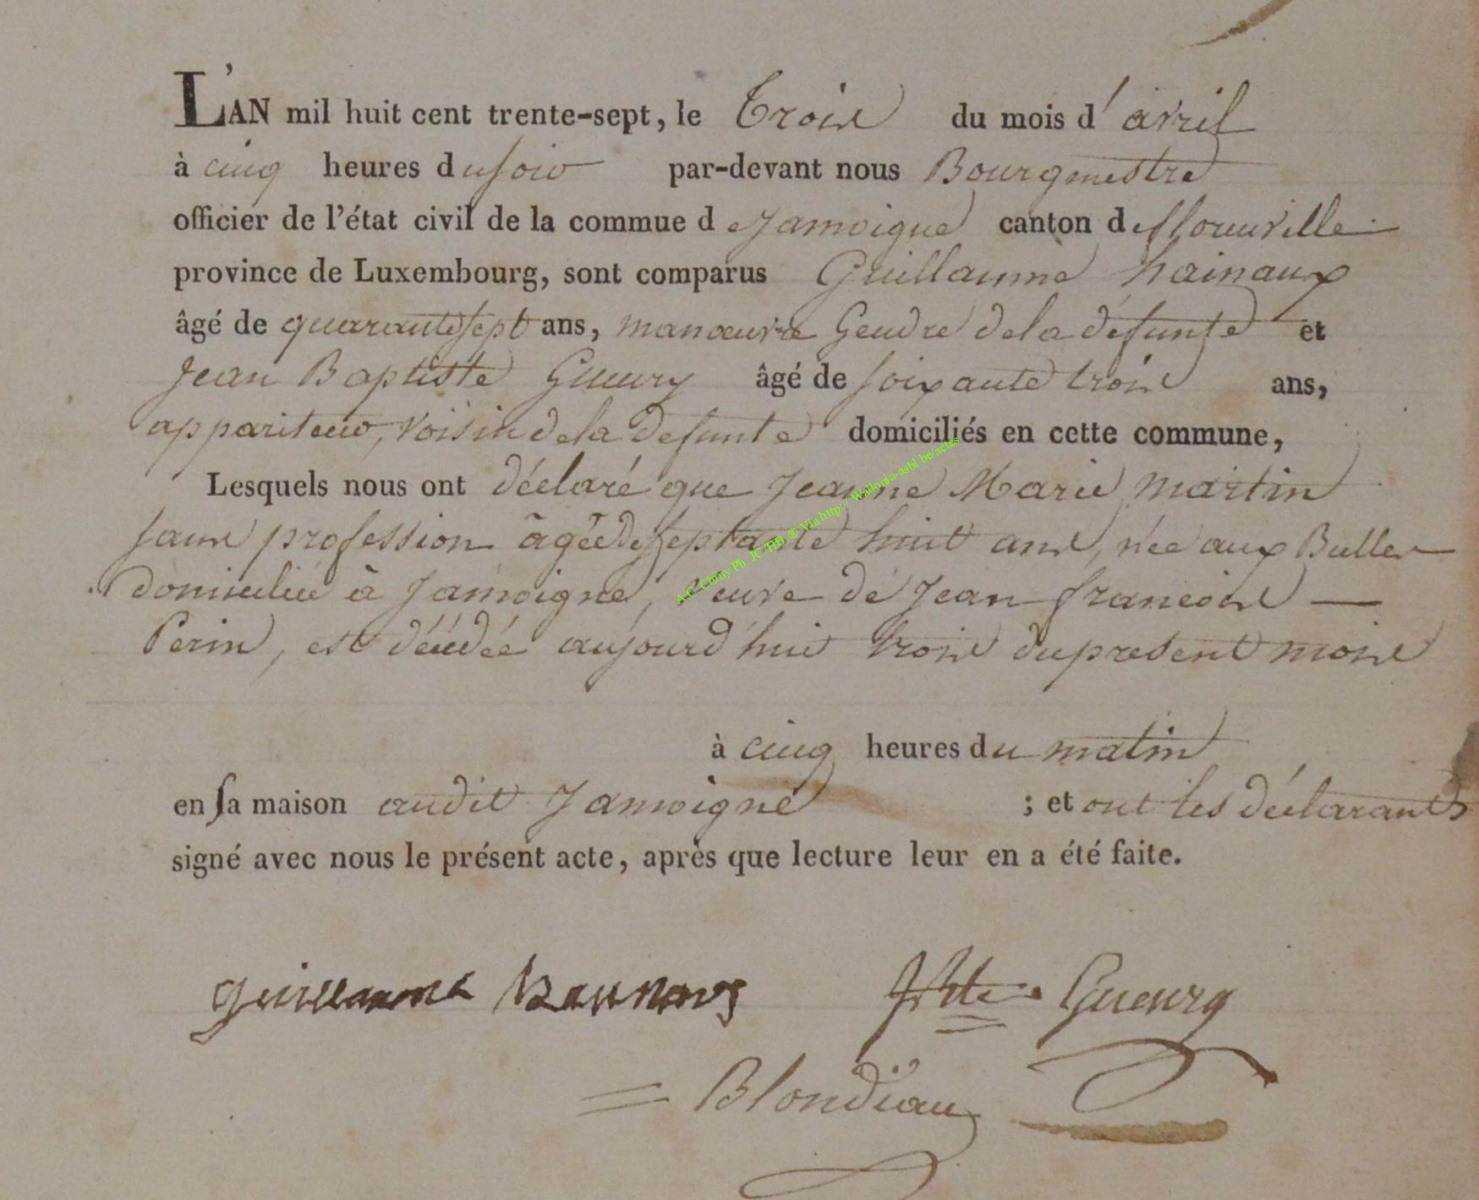 L'AN mil huit cent trente-sept, le Trois du mois d'avril
à cinq heures du soir par-devant nous Bourgmestre
officier de l'état civil de la commue de Jamoigne canton de florenville
province de Luxembourg, sont comparus Guillaume hainaux
âgé de quarante sept ans, manœuvre Gendre de la défunte et
Jean Baptiste Gueury âgé de soixante trois ans,
appariteur, voisin de la defunte domiciliés en cette commune,
Lesquels nous ont déclaré que Jeanne Marie Martin
sans profession âgée de septante huit ans, née aux Bulles
domiciliée à Jamoigne, veuve de Jean françois
Perin, est décédée aujourd'hui trois du present mois
à cinq heures du matin
en sa maison audit Jamoigne ; et ont les déclarants
signé avec nous le présent acte, après que lecture leur en a été faite.
guillaume hainaux JBte Gueury
Blondiau